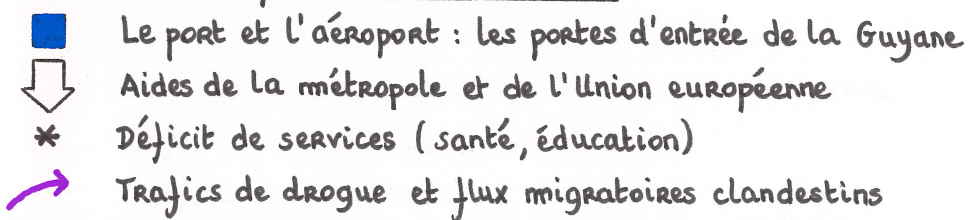 Le port et l'aéroport : les portes d'entrée de la Guyane
Aides de la métropole et de l'Union européenne
Déficit de services (santé, éducation)
Trafics de drogue et flux migratoires clandestins